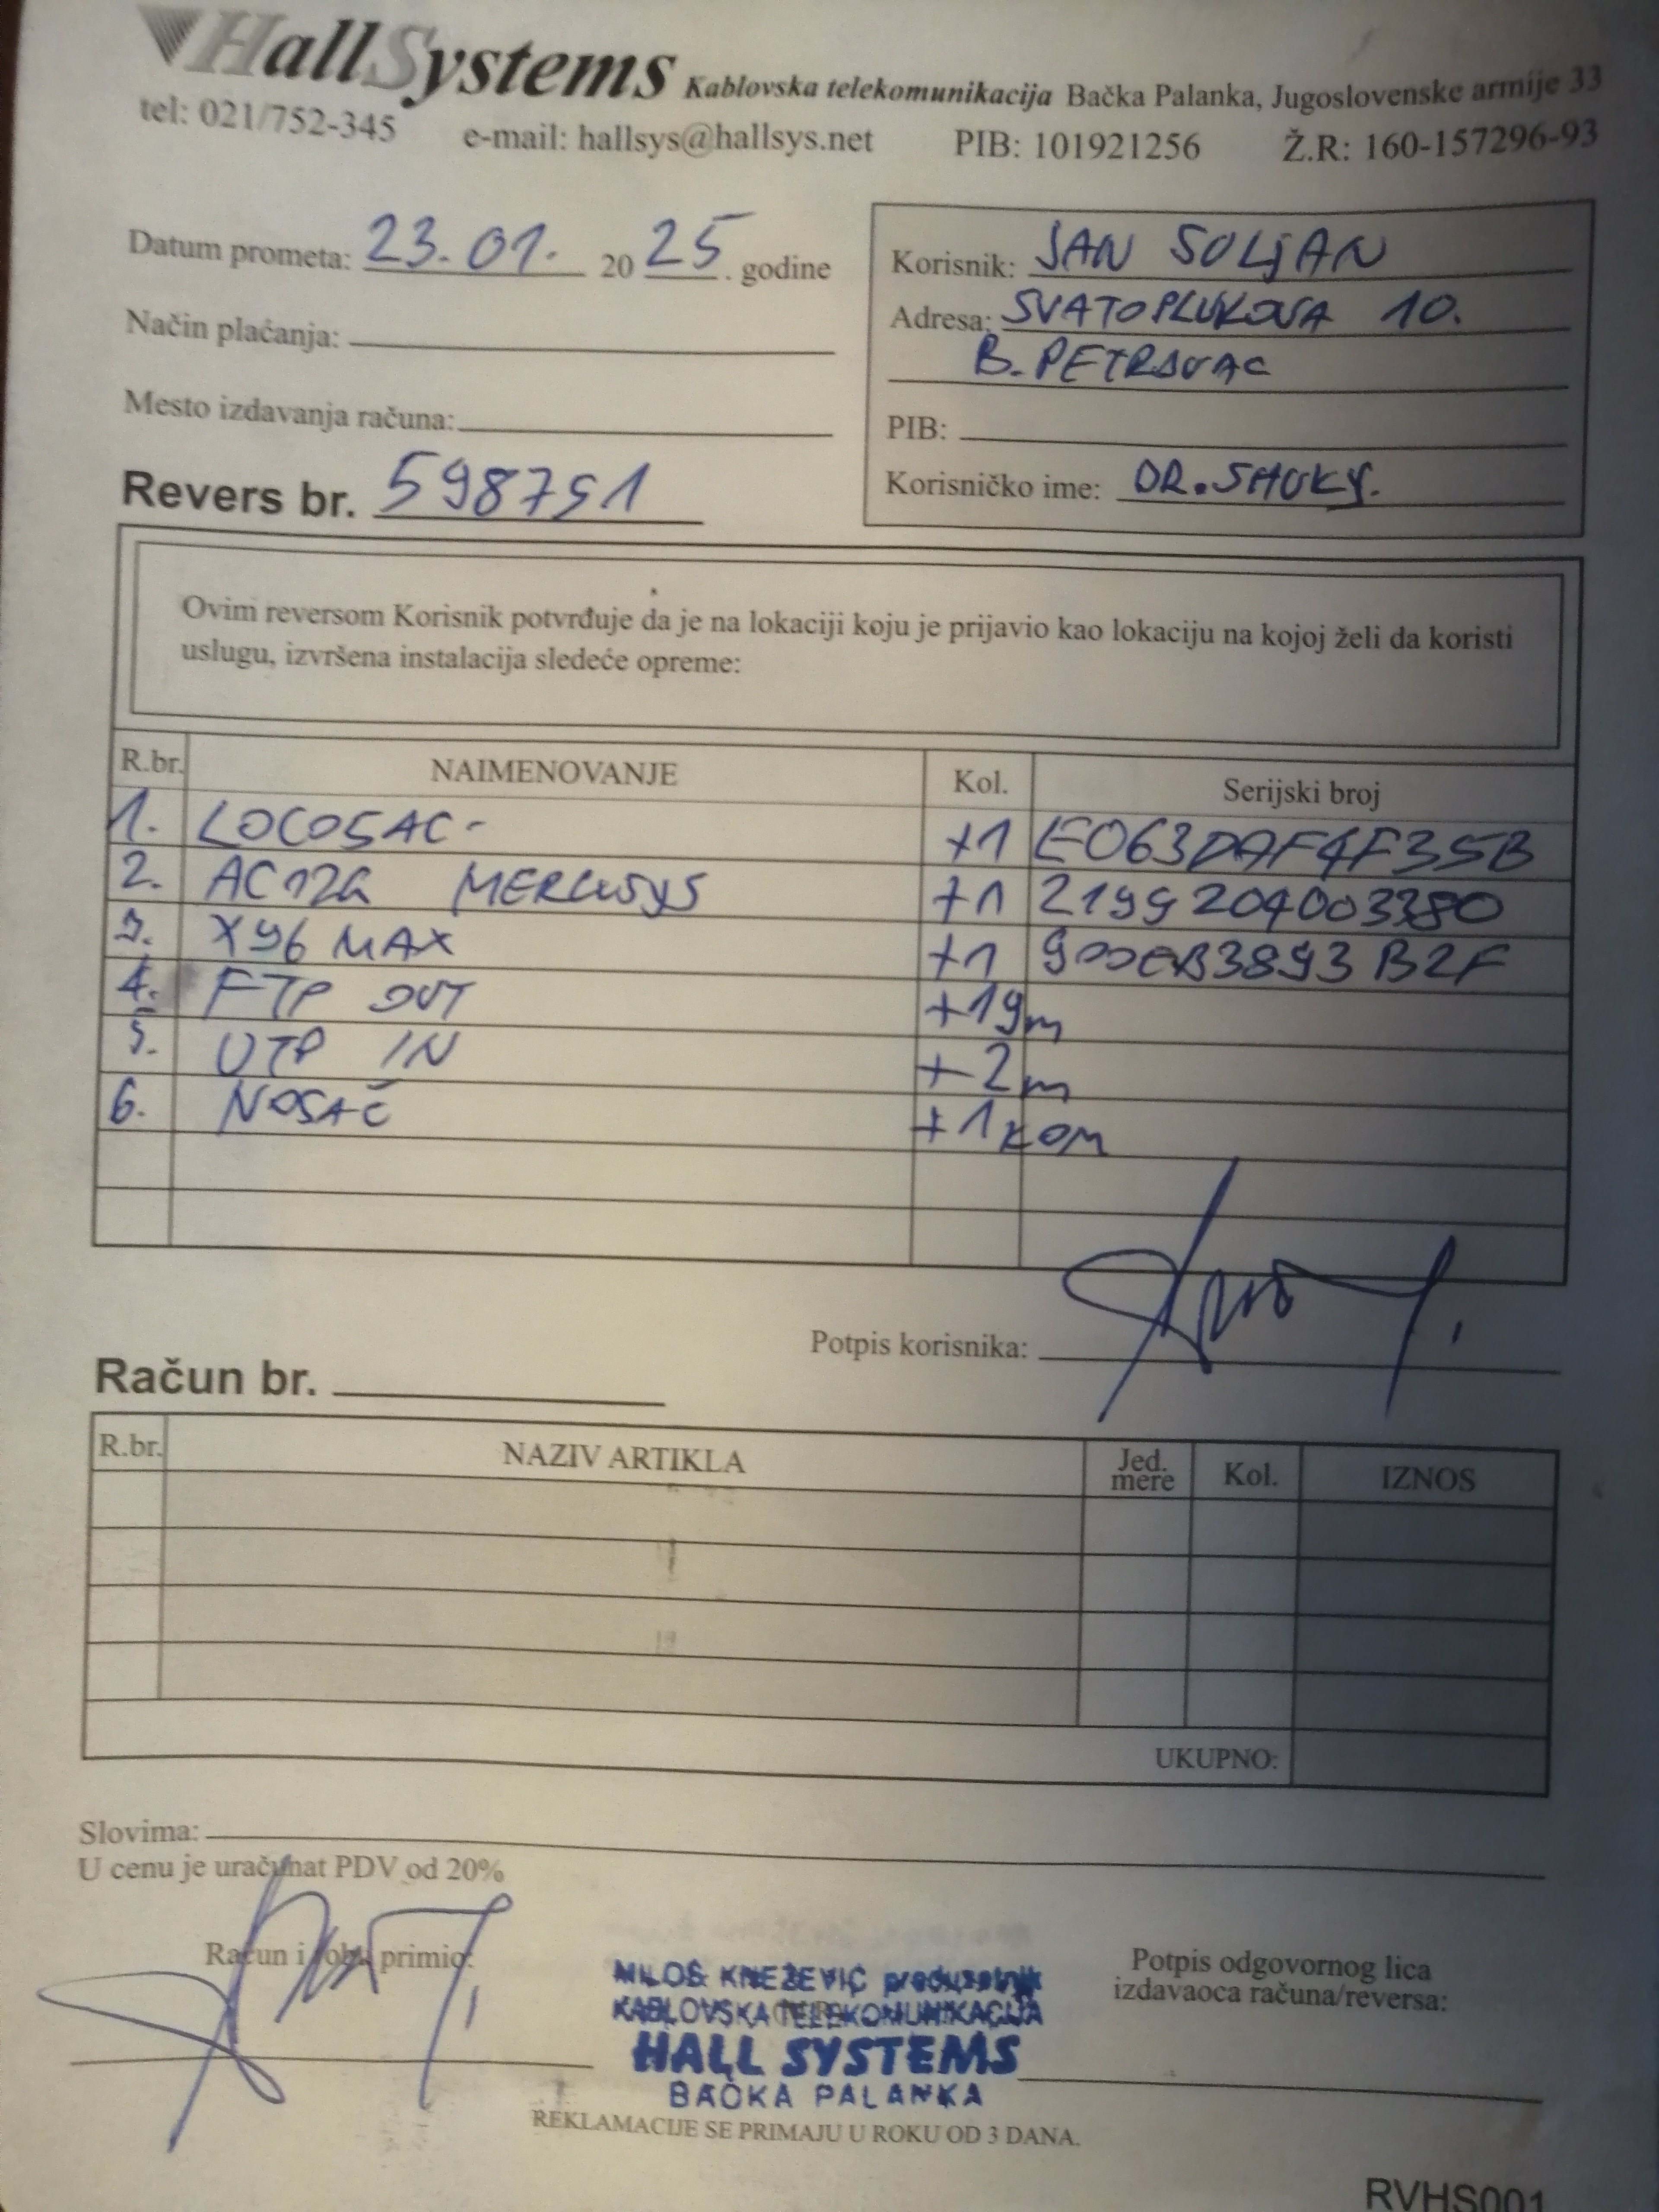 HallSystems Kablovska telekomunikacija Bačka Palanka, Jugoslovenske armije 33
tel: 021/752-345 e-mail: hallsys@hallsys.net PIB: 101921256 Ž.R: 160-157296-93
Datum prometa: 23.01. 2025. godine
Način plaćanja:
Mesto izdavanja računa:
Revers br. 598751
Korisnik: JAN SULJAN
Adresa: SVATOPLUKOVA 10.
B. PETROVAC
PIB:
Korisničko ime: DR.SHUKY.
Ovim reversom Korisnik potvrđuje da je na lokaciji koju je prijavio kao lokaciju na kojoj želi da koristi
uslugu, izvršena instalacija sledeće opreme:
R.br. NAIMENOVANJE Kol. Serijski broj
1. LOCO5AC- +1 E063DAF4F35B
2. AC12G MERCUSYS +1 2199204003380
3. X96 MAX +1 900EB3893B2F
4. FTP OUT +19m
5. UTP IN +2m
6. NOSAČ +1 KOM
Potpis korisnika:
Račun br.
R.br. NAZIV ARTIKLA Jed. mere Kol. IZNOS
UKUPNO:
Slovima:
U cenu je uračunat PDV od 20%
Račun i robu primio:
MILOŠ KNEŽEVIĆ preduzetnik
KABLOVSKA TELEKOMUNIKACIJA
HALL SYSTEMS
BAČKA PALANKA
Potpis odgovornog lica
izdavaoca računa/reversa:
REKLAMACIJE SE PRIMAJU U ROKU OD 3 DANA.
RVHS001